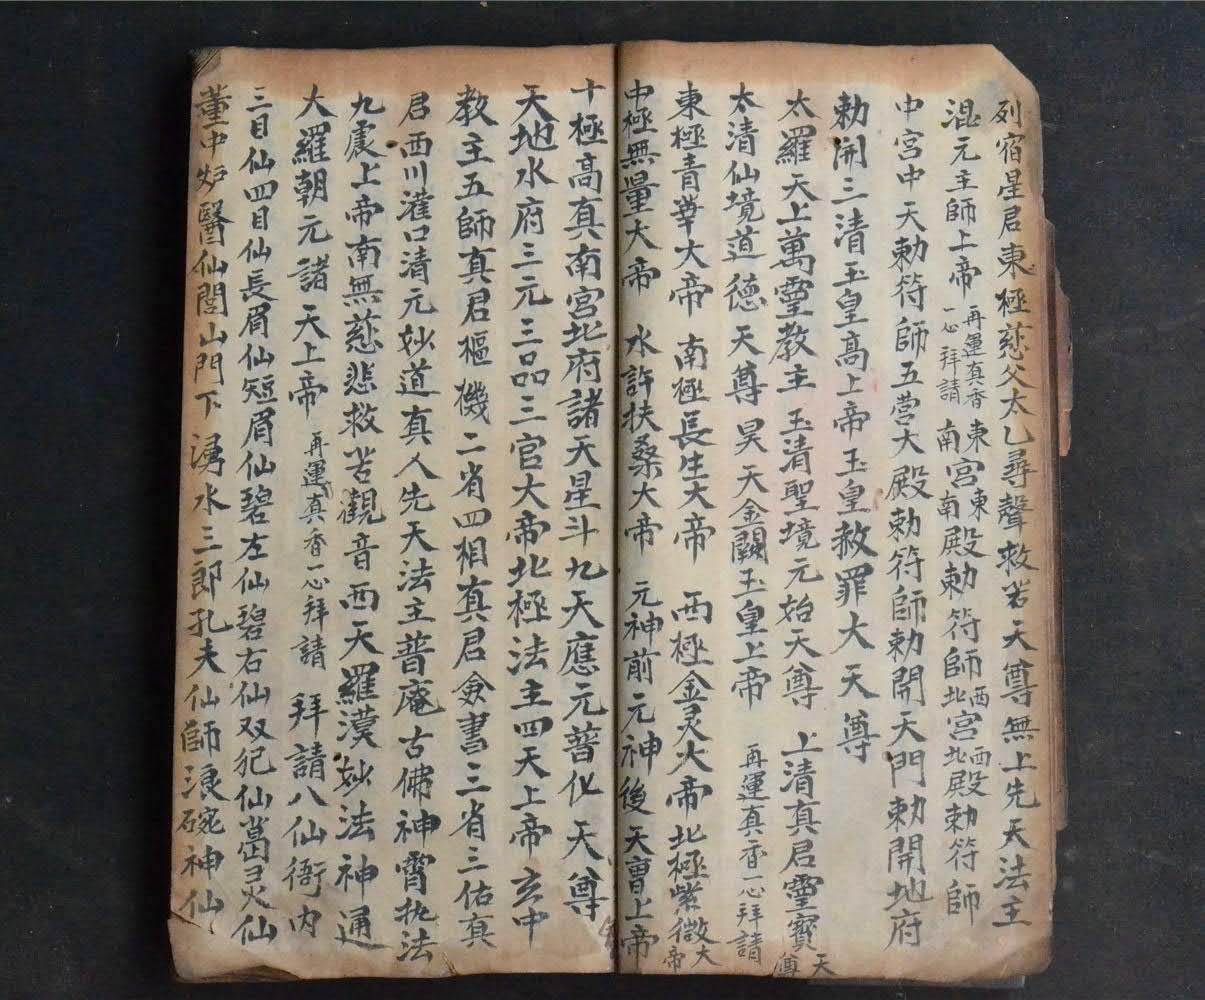 列宿星君東極慈父太乙尋聲救苦天尊無上先天法主
混元主師上帝 再運真香一心拜請 東南宮東南殿勅符師西北宮西北殿勅符師
中宮中天勅符師五营大殿勅符師勅開天門勅開地府
勅開三清玉皇高上帝玉皇赦罪大天尊
太羅天上萬靈教主 玉清聖境元始天尊 上清真君靈寶天尊
太清仙境道德天尊昊天金闕玉皇上帝 再運真香一心拜請
東極青華大帝 南極長生大帝 西極金灵大帝北極紫微大帝
中極無量大帝 水許扶桑大帝 元神前元神後天曹上帝
十極高真南宮北府諸天星斗九天應元普化天尊
天地水府三元三品三官大帝北極法主四天上帝玄中
教主五師真君樞機二省四相真君僉書三省三佑真
君西川灌口清元妙道真人先天法主普庵古佛神霄执法
九震上帝南無慈悲救苦觀音西天羅漢妙法神通
大羅朝元諸天上帝 再運真香一心拜請 拜請八仙衙内
三目仙四目仙長眉仙短眉仙碧左仙碧右仙双犯仙葛灵仙
董中炉醫仙閭山門下湧水三郎孔夫仙師浪碗神仙